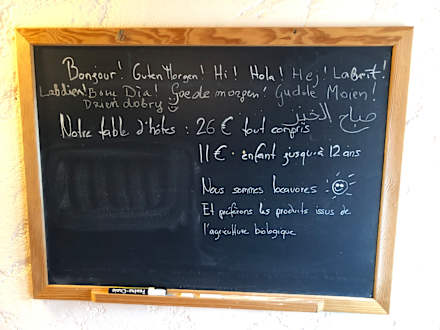 Bonjour! Guten Morgen! Hi! Hola! Hej! Labrit!
Labdien! Bom Dia! Goede morgen! Gudde Moien!
Dzień dobry
صباح الخير
Notre table d'hôtes : 26 € tout compris
11 € · enfant jusqu'à 12 ans
Nous sommes locavores !
Et préférons les produits issus de
l'agriculture biologique